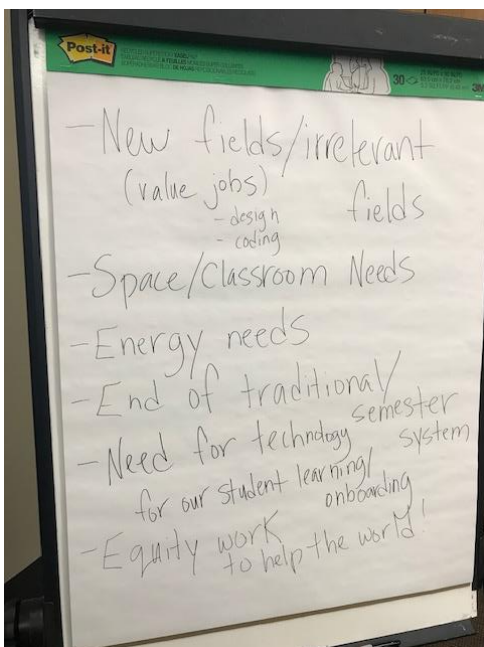 Post-it
30
3M
- New fields/irrelevant
(value jobs) fields
- design
- coding
- Space/Classroom Needs
- Energy needs
- End of traditional/
semester
system
- Need for technology
for our student learning/
onboarding
- Equity work
to help the world!